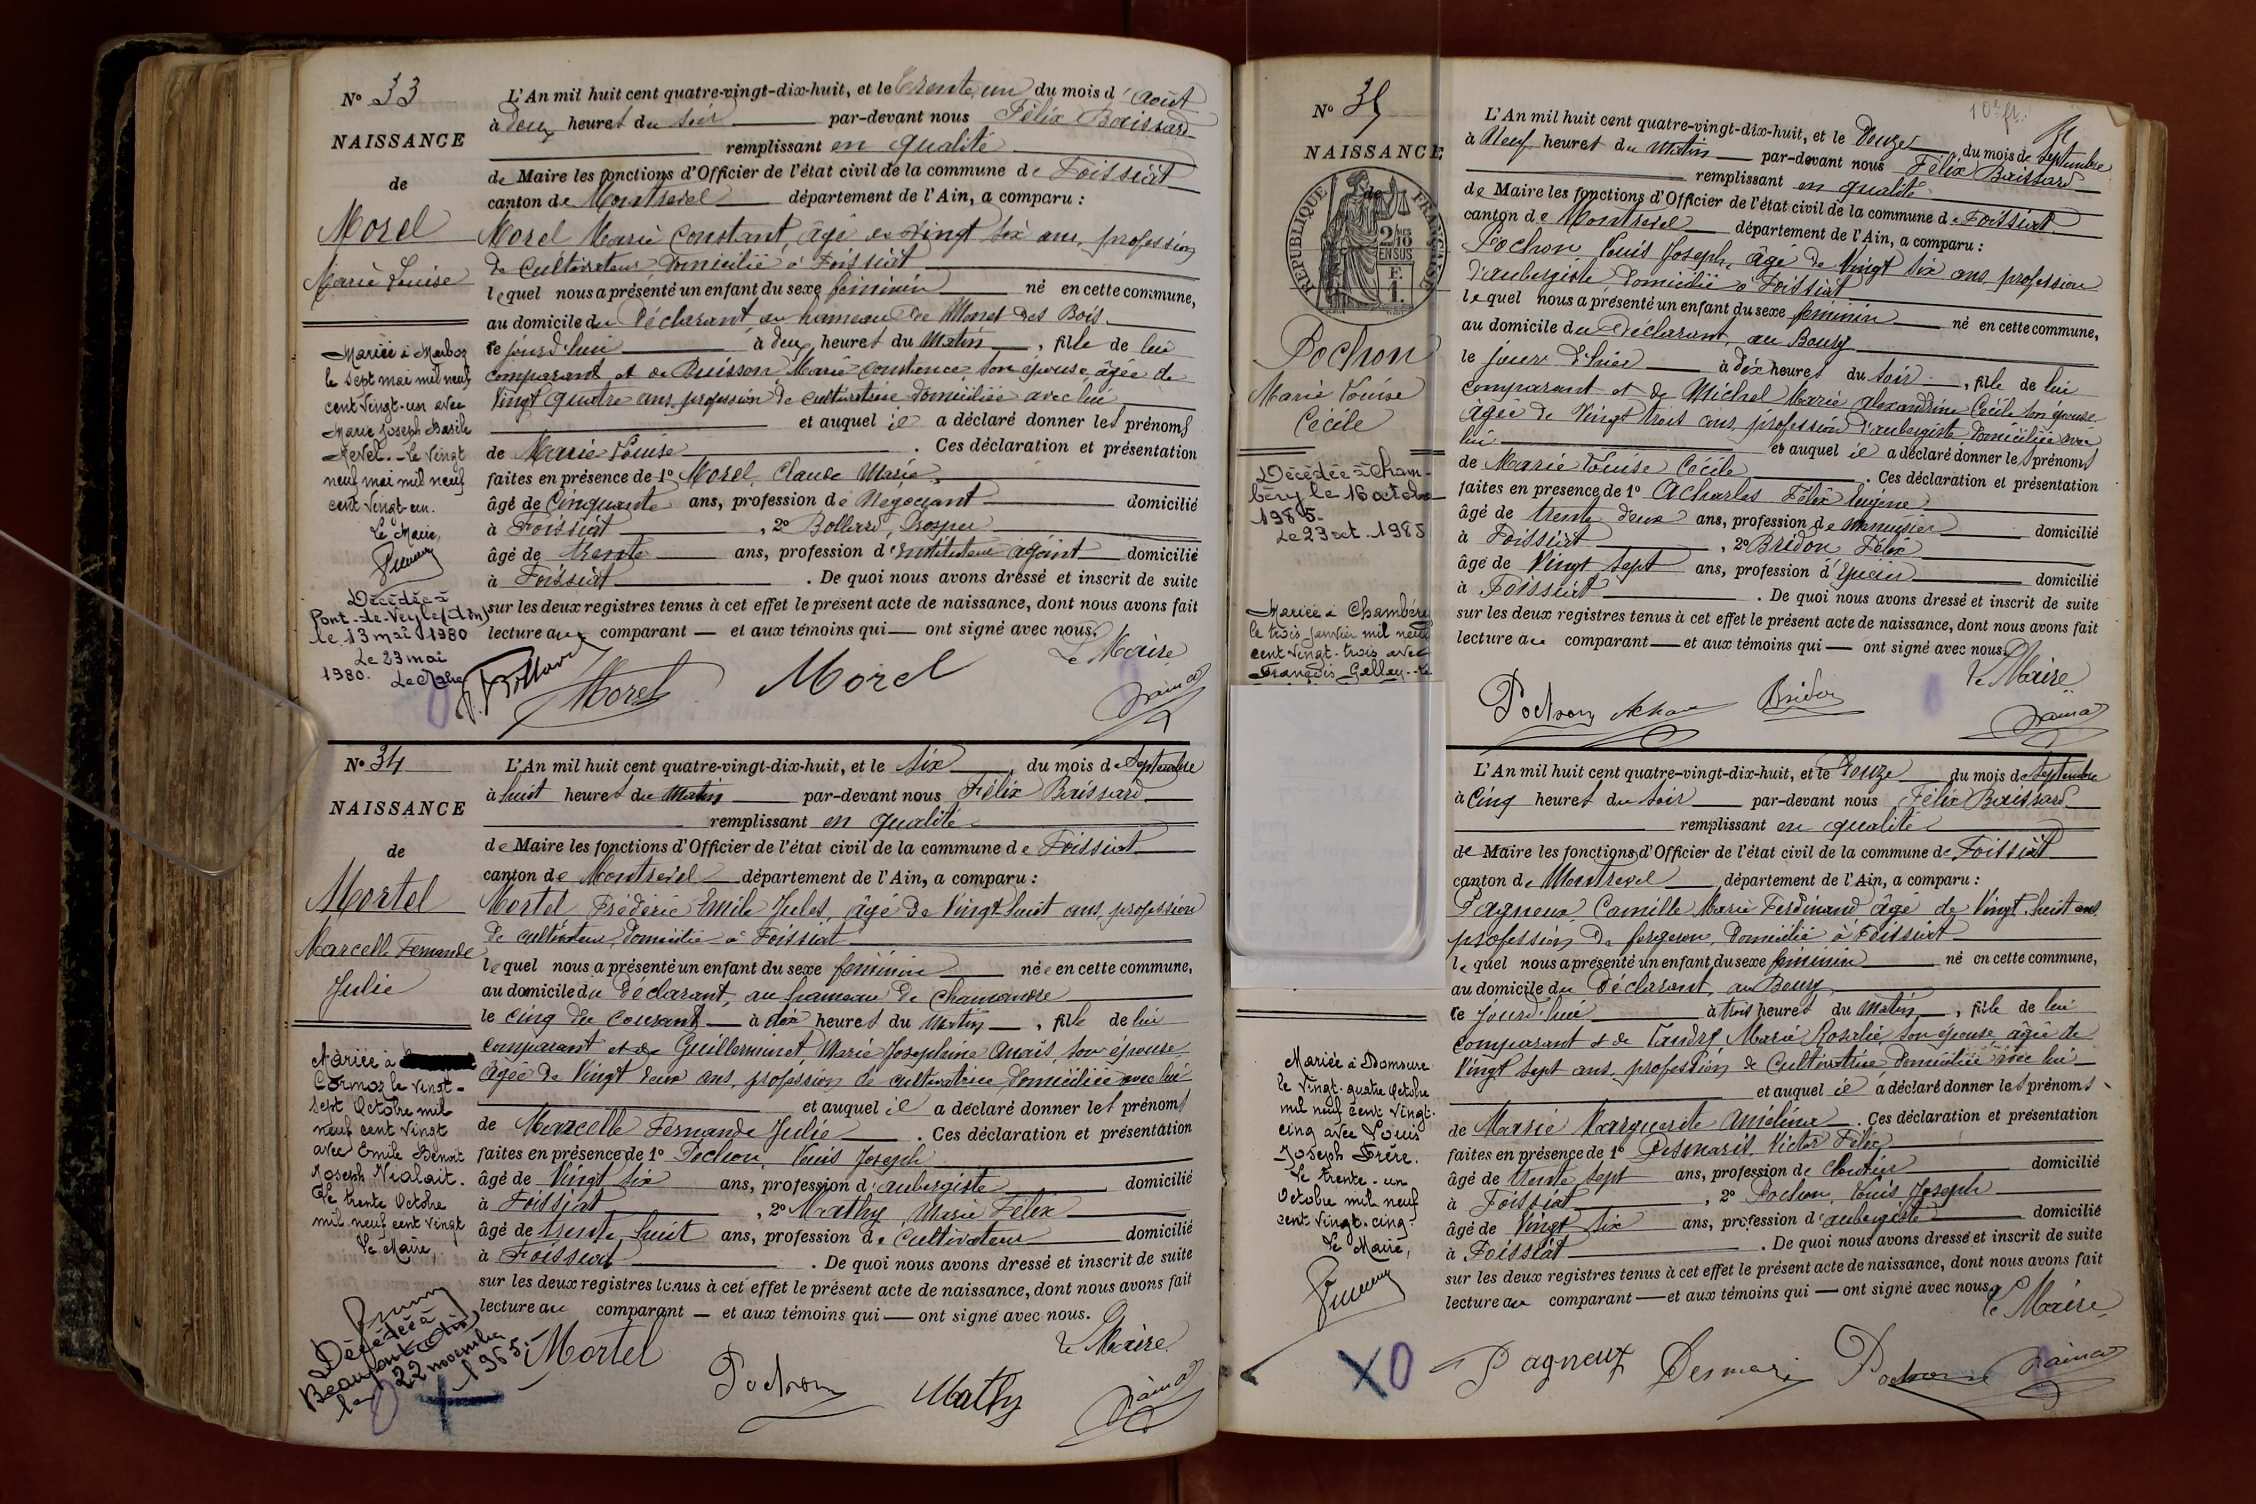 N° 33
NAISSANCE
de
Morel
Marie Louise
Mariée à Marboz
le sept mai mil neuf
cent vingt-un avec
Marie Joseph Basile
Nevel. - Le vingt
neuf mai mil neuf
cent vingt-un.
Le Maire,
Décédée à
Pont-de-Veyle (Ain)
le 13 mai 1980
Le 23 mai
1980.
L'An mil huit cent quatre-vingt-dix-huit, et le trente un du mois d'août
à deux heures du soir par-devant nous Félix Baissard
remplissant en qualité
de Maire les fonctions d'Officier de l'état civil de la commune de Foissiat
canton de Montrevel département de l'Ain, a comparu :
Morel Marie Constant, âgé de vingt six ans, profession
de cultivateur, domicilié à Foissiat
lequel nous a présenté un enfant du sexe féminin né en cette commune,
au domicile du déclarant au hameau de Monet des Bois
le jourd'hui à deux heures du matin, fille de lui
comparant et de Buisson Marie Constence, son épouse âgée de
vingt quatre ans, profession de cultivatrice domiciliée avec lui
et auquel il a déclaré donner les prénoms
de Marie Louise. Ces déclaration et présentation
faites en présence de 1° Morel, Claude Marie,
âgé de cinquante ans, profession de négociant domicilié
à Foissiat, 2° Bollard, Prosper
âgé de trente ans, profession d'instituteur adjoint domicilié
à Foissiat. De quoi nous avons dressé et inscrit de suite
sur les deux registres tenus à cet effet le présent acte de naissance, dont nous avons fait
lecture aux comparant — et aux témoins qui — ont signé avec nous.
Le Maire
P. Bollard Morel Morel
N° 34
NAISSANCE
de
Mortel
Marcelle Fernande
Julie
Mariée à
Cormoz le vingt-
sept Octobre mil
neuf cent vingt
avec Emile Benoit
Joseph Nialait.
Le trente Octobre
mil neuf cent vingt
Le Maire,
Décédée à
Beaupont (Ain)
le 22 novembre
1965.
L'An mil huit cent quatre-vingt-dix-huit, et le six du mois de Septembre
à huit heures du matin par-devant nous Félix Baissard
remplissant en qualité
de Maire les fonctions d'Officier de l'état civil de la commune de Foissiat
canton de Montrevel département de l'Ain, a comparu :
Mortel Frédéric Emile Jules, âgé de vingt huit ans, profession
de cultivateur, domicilié à Foissiat
lequel nous a présenté un enfant du sexe féminin née en cette commune,
au domicile du déclarant, au hameau de Chamandre
le cinq du courant à dix heures du matin, fille de lui
comparant et de Guillerminet Marie Josephine Anaïs, son épouse
âgée de vingt deux ans, profession de cultivatrice, domiciliée avec lui
et auquel il a déclaré donner les prénoms
de Marcelle Fernande Julie. Ces déclaration et présentation
faites en présence de 1° Pochon, Louis Joseph
âgé de vingt six ans, profession d'aubergiste domicilié
à Foissiat, 2° Mathy, Marie Félix
âgé de trente huit ans, profession de cultivateur domicilié
à Foissiat. De quoi nous avons dressé et inscrit de suite
sur les deux registres tenus à cet effet le présent acte de naissance, dont nous avons fait
lecture au comparant — et aux témoins qui — ont signé avec nous.
Le Maire
Mortel Pochon Mathy
N° 35
NAISSANCE
de
RÉPUBLIQUE FRANÇAISE
2/10
EN SUS
Pochon
Marie Louise
Cécile
Décédée à Cham-
béry le 16 octobre
1985.
Le 23 oct. 1985
Mariée à Chambéry
le trois janvier mil neuf
cent vingt-trois avec
François Gellay. - Le
L'An mil huit cent quatre-vingt-dix-huit, et le douze du mois de septembre
à neuf heures du matin par-devant nous Félix Baissard
remplissant en qualité
de Maire les fonctions d'Officier de l'état civil de la commune de Foissiat
canton de Montrevel département de l'Ain, a comparu :
Pochon Louis Joseph, âgé de vingt six ans, profession
d'aubergiste, domicilié à Foissiat
lequel nous a présenté un enfant du sexe féminin né en cette commune,
au domicile du déclarant, au Bourg
le jour d'hier à dix heures du soir, fille de lui
comparant et de Michel Marie Alexandrine Cécile son épouse
âgée de vingt trois ans, profession d'aubergiste domiciliée avec
lui et auquel il a déclaré donner les prénoms
de Marie Louise Cécile. Ces déclaration et présentation
faites en présence de 1° Acharles Félix Eugène
âgé de trente deux ans, profession de menuisier domicilié
à Foissiat, 2° Bridon Félix
âgé de vingt sept ans, profession d'épicier domicilié
à Foissiat. De quoi nous avons dressé et inscrit de suite
sur les deux registres tenus à cet effet le présent acte de naissance, dont nous avons fait
lecture au comparant — et aux témoins qui — ont signé avec nous.
Le Maire
Pochon Bridon
Mariée à Domsure
le vingt-quatre Octobre
mil neuf cent vingt-
cinq avec Louis
Joseph Frère.
Le trente-un
Octobre mil neuf
cent vingt-cinq
Le Maire,
L'An mil huit cent quatre-vingt-dix-huit, et le douze du mois de Septembre
à cinq heures du soir par-devant nous Félix Baissard
remplissant en qualité
de Maire les fonctions d'Officier de l'état civil de la commune de Foissiat
canton de Montrevel département de l'Ain, a comparu :
Pagneux Camille Marie Ferdinand âgé de vingt huit ans
profession de forgeron, domicilié à Foissiat
lequel nous a présenté un enfant du sexe féminin né en cette commune,
au domicile du déclarant, au Bourg
le jourd'hui à trois heures du matin, fille de lui
comparant et de Tandry Marie Rosalie, son épouse âgée de
vingt sept ans, profession de cultivatrice domiciliée avec lui
et auquel il a déclaré donner les prénoms
de Marie Marguerite Amélina. Ces déclaration et présentation
faites en présence de 1° Desmaris, Victor Félix
âgé de trente sept ans, profession de cloutier domicilié
à Foissiat, 2° Pochon, Louis Joseph
âgé de vingt six ans, profession d'aubergiste domicilié
à Foissiat. De quoi nous avons dressé et inscrit de suite
sur les deux registres tenus à cet effet le présent acte de naissance, dont nous avons fait
lecture au comparant — et aux témoins qui — ont signé avec nous.
Le Maire
Pagneux Desmaris Pochon